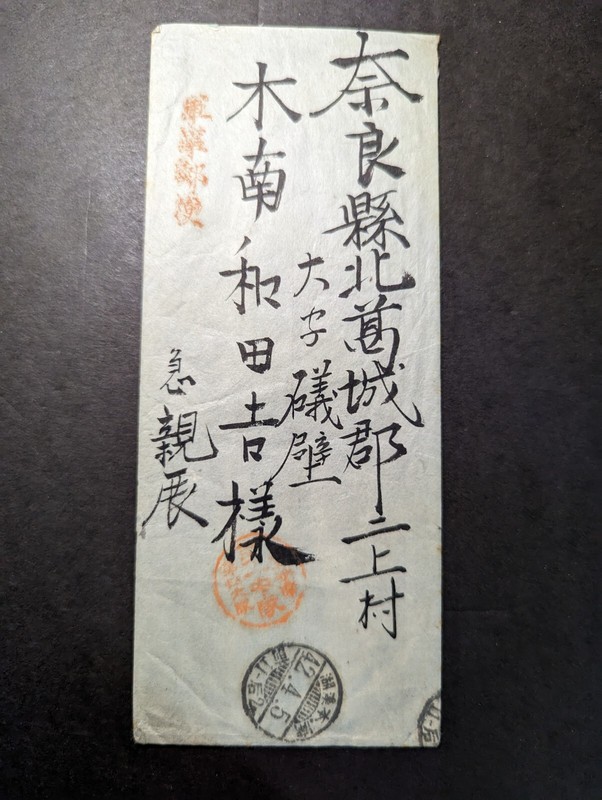 奈良縣北葛城郡二上村
大字礒壁
木南和田吉様
急親展
軍事郵便
42.4.5